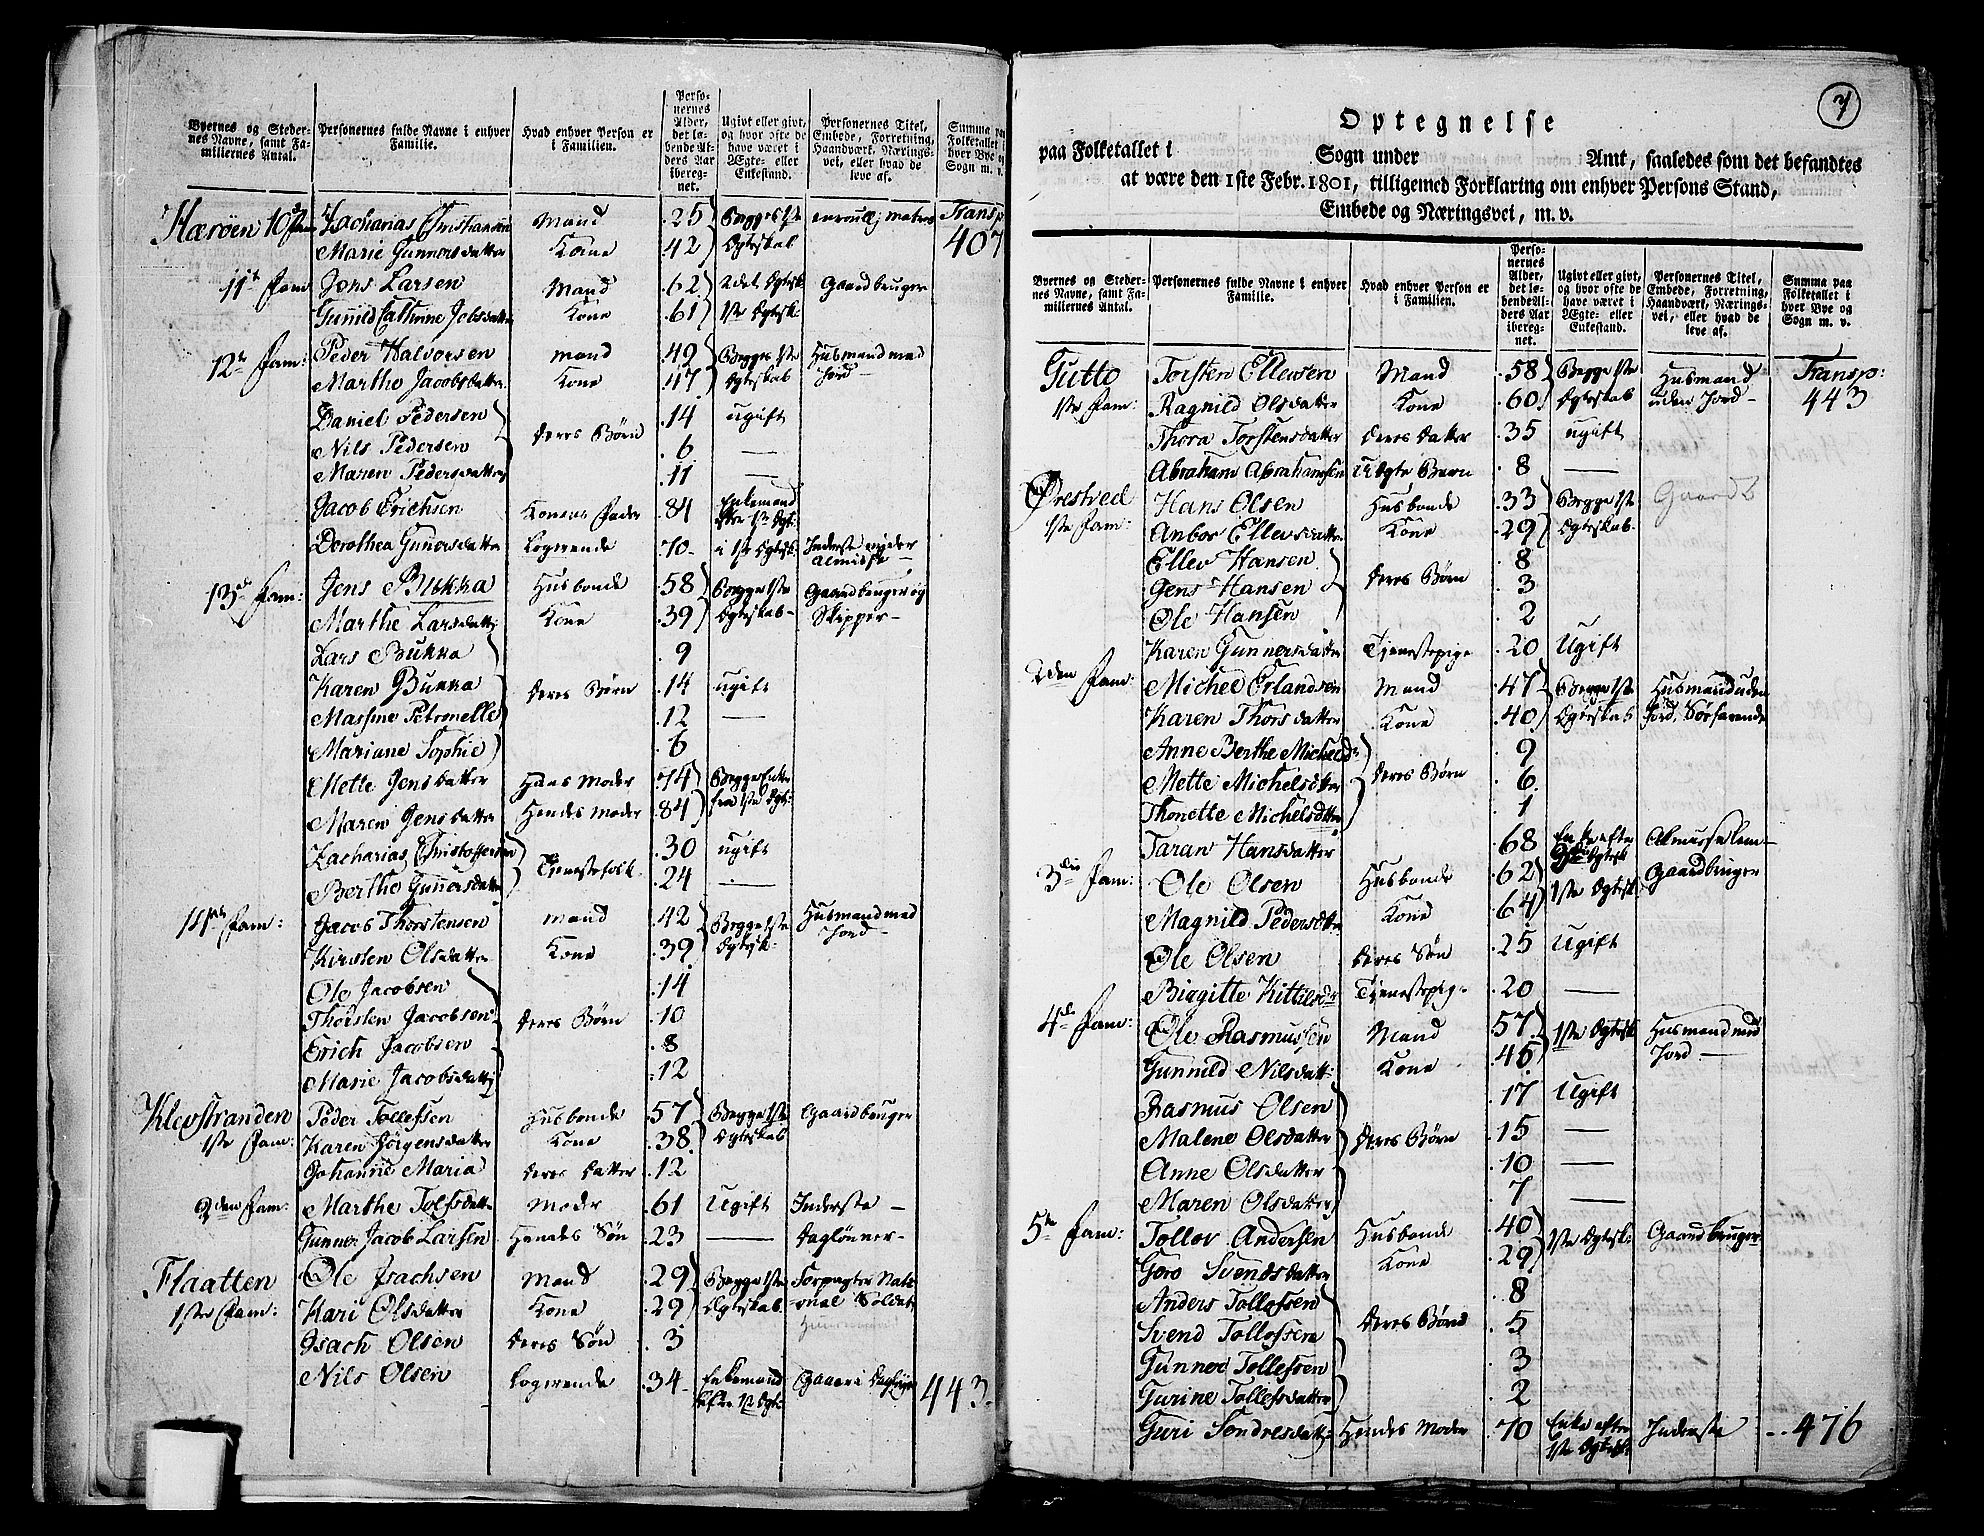 Byernes og Steder-
nes Navne, samt Fa-
miliernes Antal.
Personernes fulde Navne i enhver
Familie.
Hvad enhver Person er
i Familien.
Perso-
nernes
Alder,
det lø-
bende Al-
ders Aar
ibereg-
net.
Ugivt eller givt,
og hvor ofte de
have været i
Ægte- eller
Enkestand.
Personernes Titel,
Embede, Forretning,
Haandværk, Nærings-
vei, eller hvad de
leve af.
Summa paa
Folketallet i
hver Bye og
Sogn m. v.
Hærøen 10de Fam Zacharias Christiansen Mand 25 Begge 1ste Transp:
Marie Gunnersdatter Kone 42 Egteskab 407
11te Fam Jens Larsen Mand 62 2det Egtesk Gaardbruger
Gunnild Cathrine Jobsdatter Kone 61 1ste Egtesk:
12te Fam: Peder Halvorsen Mand 49 Begge 1ste Husmand med
Marthe Jacobsdatter Kone 47 Egteskab Jord
Daniel Pedersen 14 ugift
Nils Pedersen Deres Børn 6 —
Maren Pedersdatter 11
Jacob Erichsen Konens Fader 84 Enkemand
efter 1ste Egt:
Dorothea Gunnersdatter Logerende 70 i 1ste Egtesk. Inderste nyder
Almisse
13de Fam: Jens Bukka Husbonde 58 Begge 1ste Gaardbruger og
Marthe Larsdatter Kone 39 Egteskab Skipper
Lars Bukka 9
Karen Bukka Deres Børn 14 ugift
Massine Petronelle 12 —
Mariane Sophie 6
Mette Jensdatter Hans Moder 74 Begge Enker
Maren Jensdatter Hendes Moder 84 fra 1ste Egt:
Zacharias Christoffersen 30 ugift
Berthe Gunnersdatter Tienestefolk 24 —
14de Fam: Jacob Thorstensen Mand 42 Begge 1ste Husmand med
Kirsten Olsdatter Kone 39 Egtesk: Jord
Ole Jacobsen 14
Thorsten Jacobsen Deres Børn 10
Erich Jacobsen 8
Marie Jacobsdatter 12
Klevstranden Peder Tollefsen Husbonde 57 Begge 1ste Gaardbruger
1ste Fam: Karen Jørgensdatter Kone 38 Egteskab
Johanne Maria Deres Datter 12
2den Fam: Marthe Tolfsdatter Moder 61 Ugift Inderste
Gunner Jacob Larsen Hendes Søn 23 — Daglønner
Flaatten Ole Isachsen Mand 29 Begge 1ste Forpagter Nati-
1ste Fam: Kari Olsdatter Kone 29 Egteskab onal Soldat
Isach Olsen Deres Søn 3
Nils Olsen Logerende 34 Enkemand
efter 1ste Egt: 443

7
Optegnelse
paa Folketallet i Sogn under Amt, saaledes som det befandtes
at være den 1ste Febr. 1801, tilligemed Forklaring om enhver Persons Stand,
Embede og Næringsvei, m. v.
Byernes og Steder-
nes Navne, samt Fa-
miliernes Antal.
Personernes fulde Navne i enhver
Familie.
Hvad enhver Person er
i Familien.
Perso-
nernes
Alder,
det lø-
bende Al-
ders Aar
ibereg-
net.
Ugivt eller givt,
og hvor ofte de
have været i
Ægte- eller
Enkestand.
Personernes Titel,
Embede, Forretning,
Haandværk, Nærings-
vei, eller hvad de
leve af.
Summa paa
Folketallet i
hver Bye og
Sogn m. v.
Gutto Torsten Ellevsen Mand 58 Begge 1ste Husmand Transp:
1ste Fam: Ragnild Olsdatter Kone 60 Egteskab uden Jord 443
Thora Torstensdatter Deres Datter 35 ugift
Abraham Abrahamsen Uegte Barn 8 —
Ørestved Hans Olsen Husbonde 33 Begge 1ste Gaardb
1ste Fam: Anbor Ellevsdatter Kone 29 Egteskab
Ellev Hansen 8
Gens Hansen Deres Børn 3
Ole Hansen 2
Karen Gunnersdatter Tienestepige 20 Ugift
2den Fam: Michel Erlandsen Mand 47 Begge 1ste Husmand uden
Karen Thorsdatter Kone 40 Egteskab Jord, Søefarende
Anne Berthe Michelsdr 9
Mette Michelsdtter Deres Børn 6
Thonette Michelsdtter 1
Taran Hansdatter 68 Enke efter Almusselem
3die Fam: Ole Olsen Husbonde 62 1ste Egtesk Gaardbruger
Magnild Pedersdtr Kone 64
Ole Olsen Deres Søn 25 Ugift
Birgitte Kittilsdr Tienestepige 20 —
4de Fam: Ole Rasmussen Mand 57 1ste Egtesk Husmand med
Gunnild Nilsdatt: Kone 46 Jord
Rasmus Olsen 17 Ugift
Malene Olsdatter Deres Børn 15 —
Anne Olsdatter 10 —
Maren Olsdatter 7 —
5te Fam: Tollov Andersen Husbonde 40 1ste Egtesk: Gaardbruger
Goro Svendsdatter Kone 29
Anders Tollofsen 8
Svend Tollofsen Deres Børn 5
Gunner Tollefsen 3
Gurine Tollefsdatter 2
Guri Sondresdatter Hendes Moder 70 Enke efter Inderste 476
1ste Egtesk: